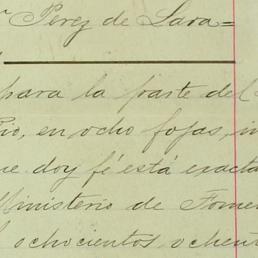 Perez de Lara=
para la parte del
en ocho fojas,
doy fé está
Ministerio de
ochocientos